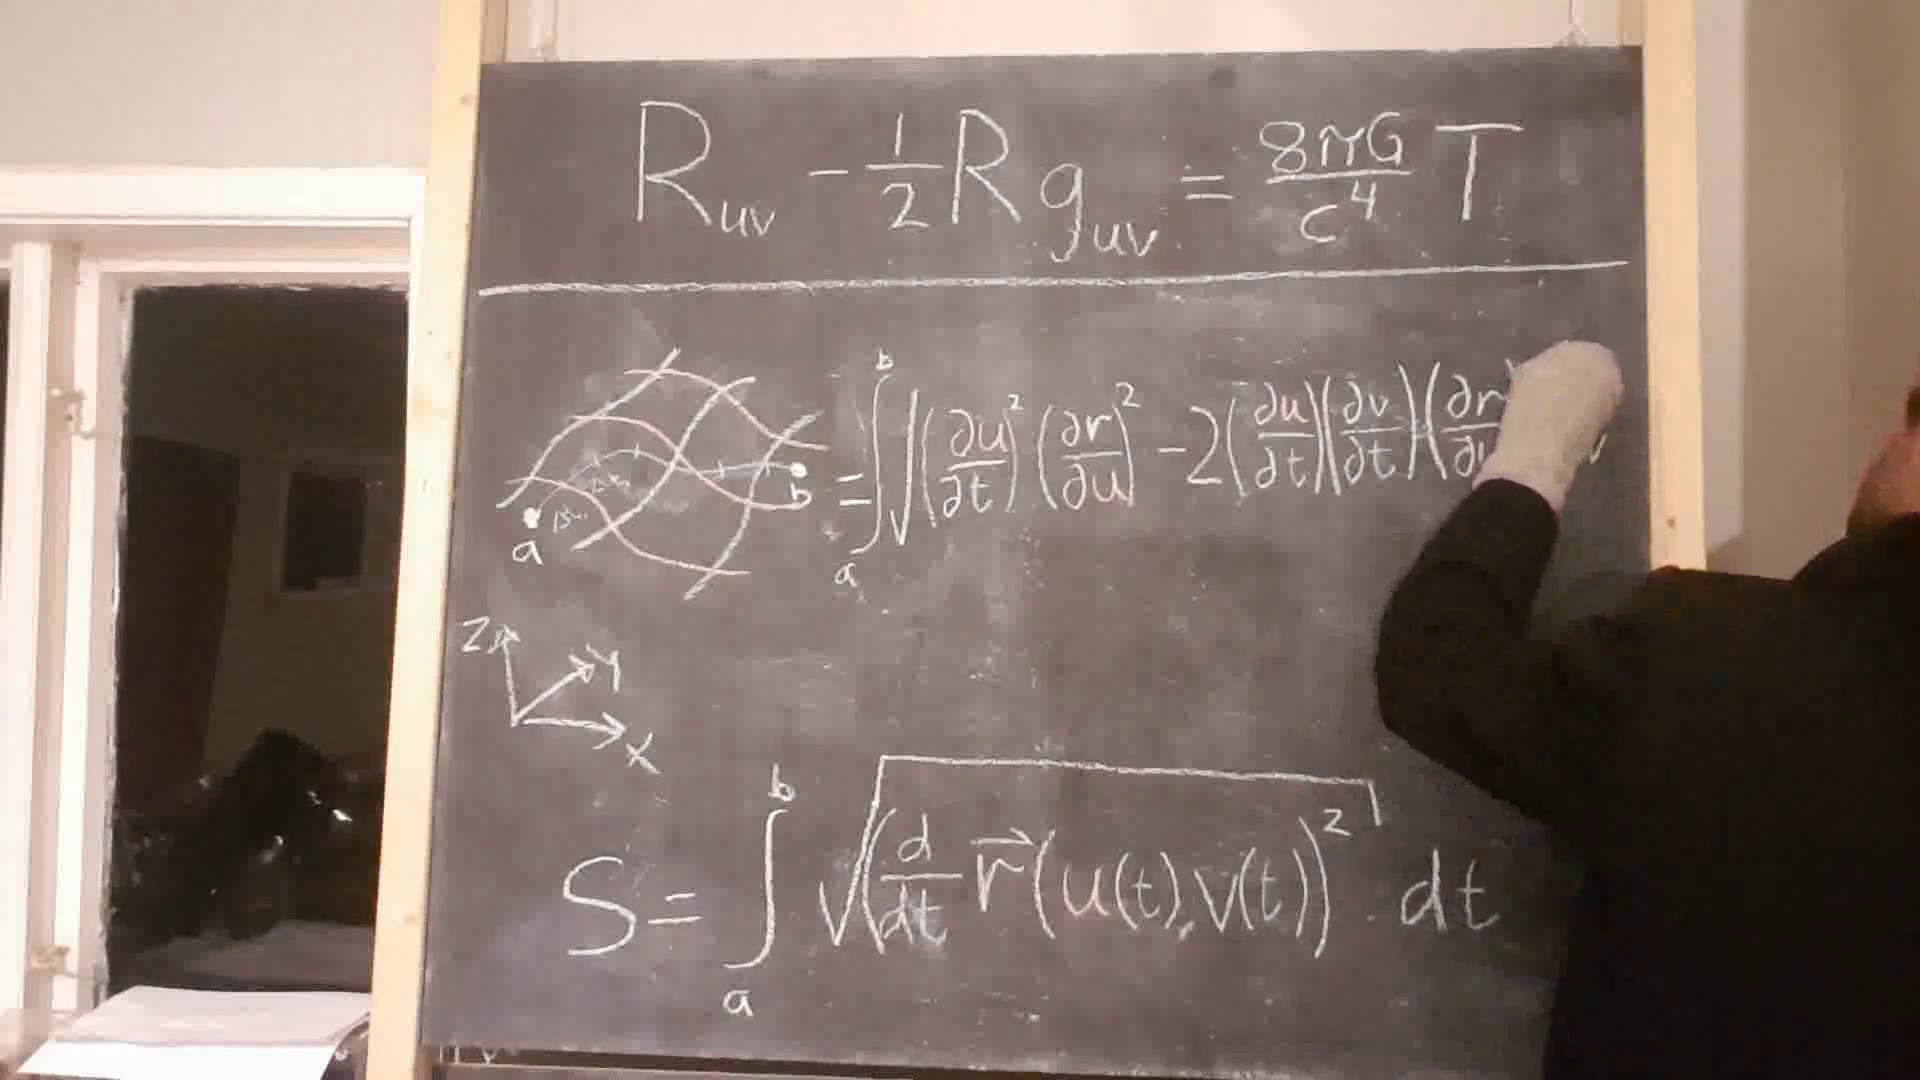 R_uv - 1/2 R g_uv = 8πG/c^4 T
a b
= ∫_a^b √ (∂u/∂t)^2 (∂r/∂u)^2 - 2 (∂u/∂t)(∂v/∂t)(∂r/∂u
Z Y X
S = ∫_a^b √((d/dt r⃗(u(t), v(t))^2) · dt